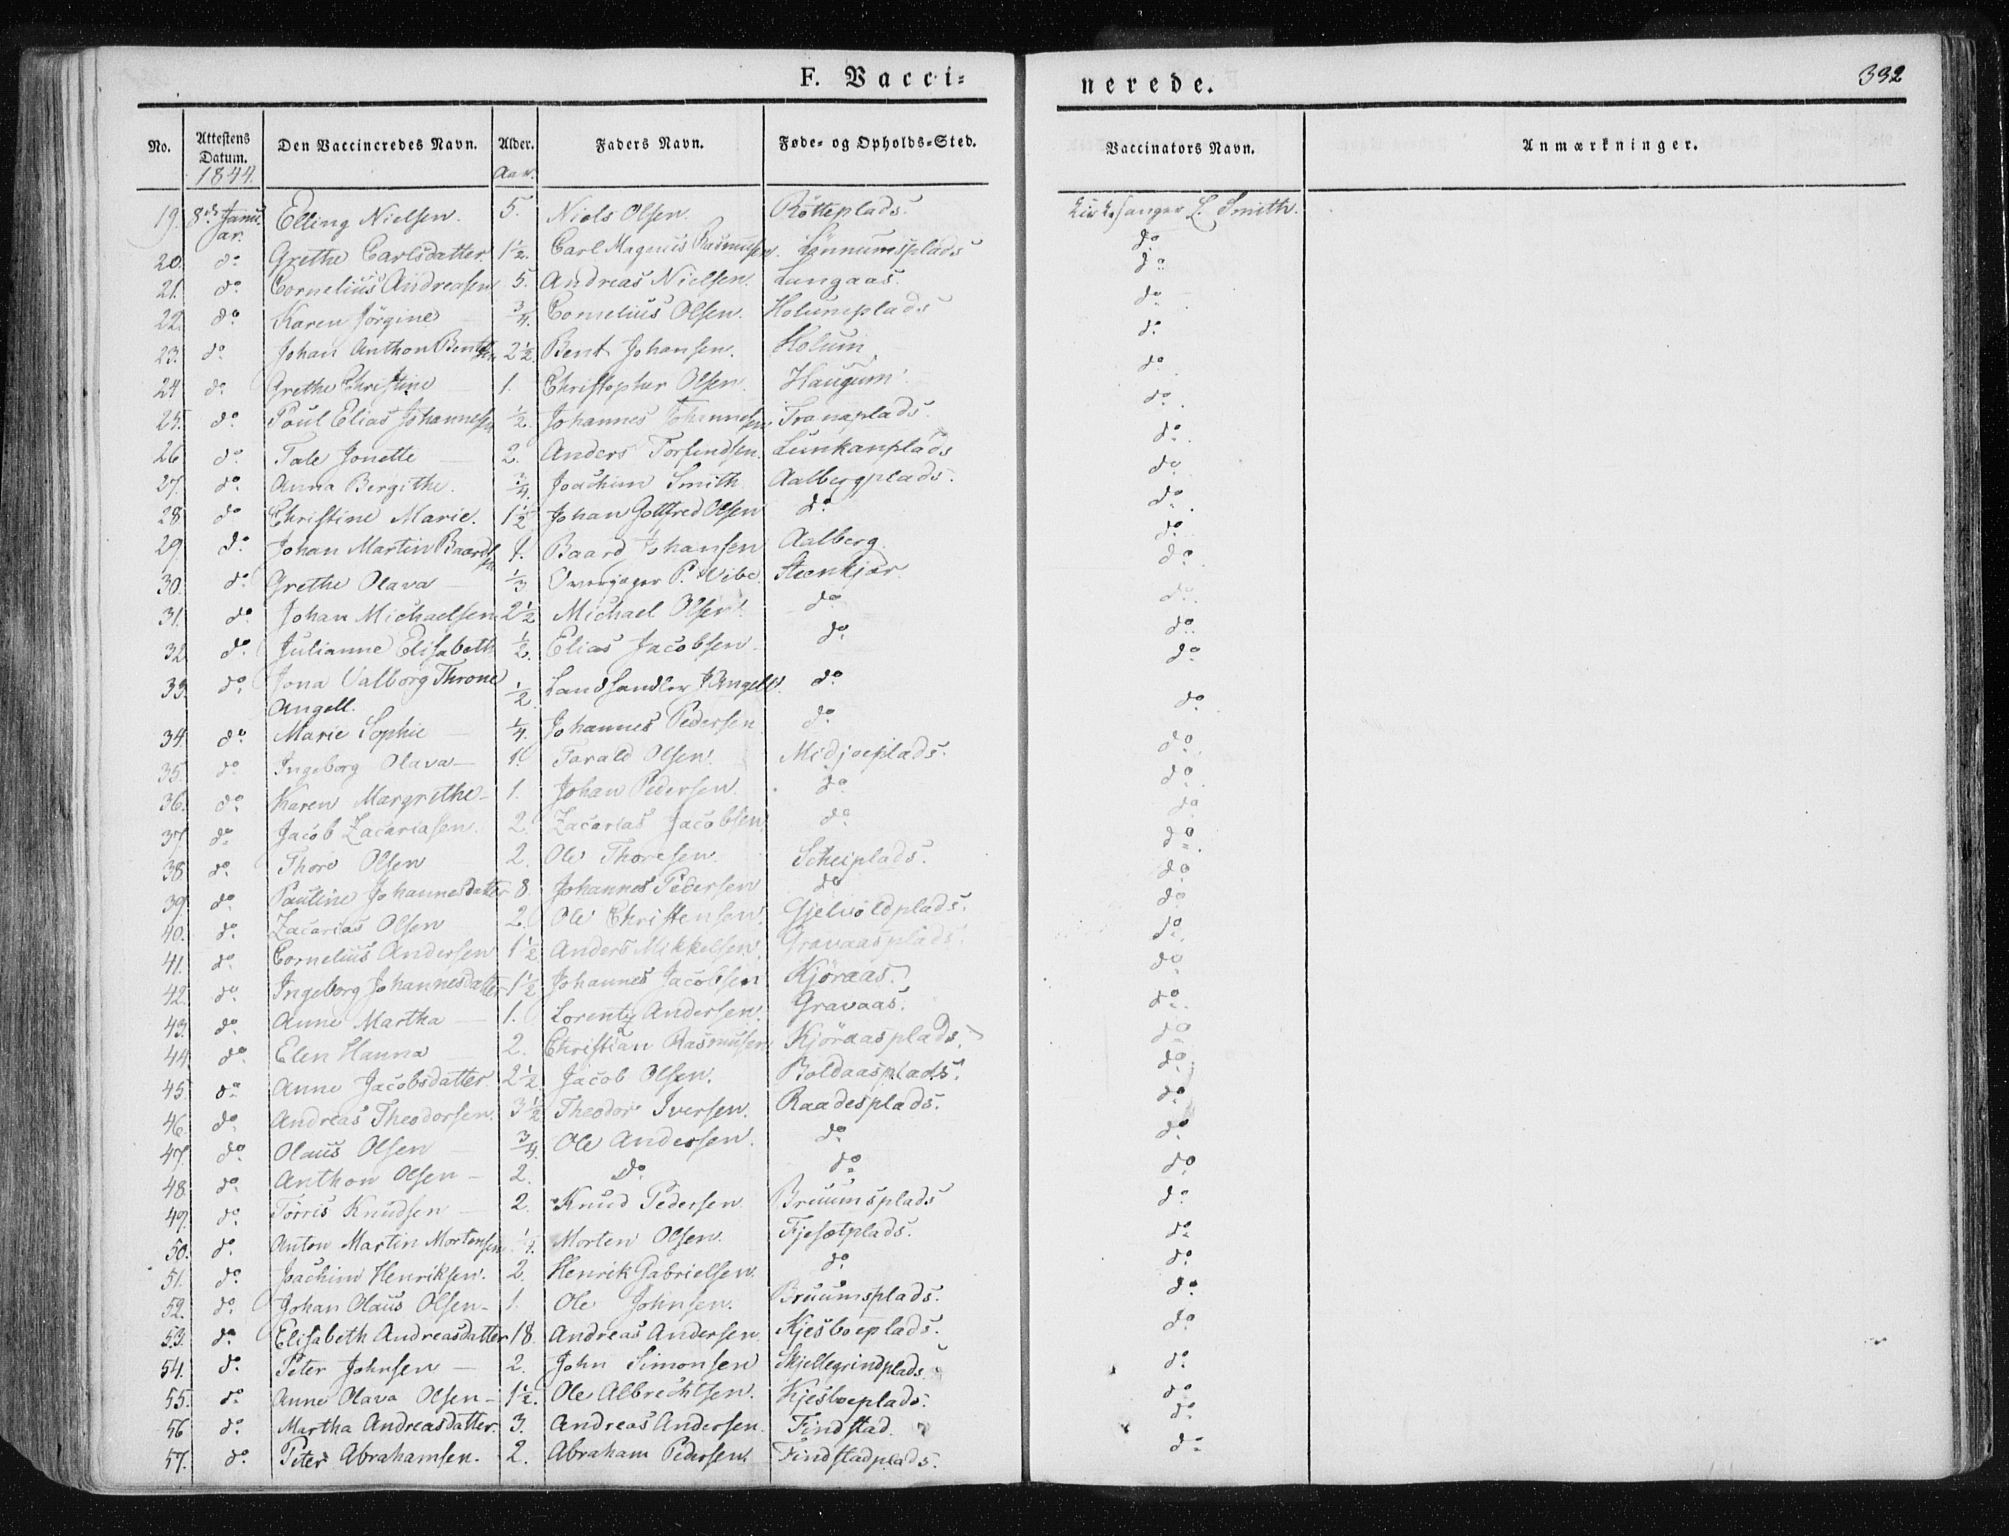 F. Vacci-
nerede.
332
No. Attestens Datum. Den Vaccineredes Navn. Alder. Faders Navn. Føde- og Opholds-Sted. Vaccinators Navn. Anmærkninger.
1844. Aar.
19. 8de Januar. Elling Nielsen. 5. Niels Olsen. Rötteplads. Kirkesanger L. Smith.
20. do Grethe Carlsdatter 1½. Carl Magnus Rasmussen. Lönnumsplads do
21. do Cornelius Andreasen 5. Andreas Nielsen. Langaas. do
22. do Karen Jörgine — ¾. Cornelius Olsen. Holumplads do
23. do Johan Anthon Bentsen 2½. Bent Johansen. Holum do
24 do Grethe Christine — 1. Christopher Olsen. Haugum do
25. do Poul Elias Johannesen ½. Johannes Johannesen Tranaplads. do
26 do Tale Jonette — 2. Anders Torfindsen. Lunkanplads do
27. do Anna Bergithe. ¾. Joachim Smith Aalbergplads. do
28 do Christine Marie. 1½ Johan Gottfred Olsen do do
29 do Johan Martin Baardsen 1. Baard Johansen Aalberg do
30. do Grethe Olava — ⅓ Overjæger P. Wibe. Steenkjær. do
31. do Johan Michaelsen 2½ Michael Olsen. do do
32 do Julianne Elisabeth ½. Elias Jacobsen. do do
33. do Jona Valborg Throne ½ Landhandler Angell. do do
Angell.
34. do Marie Sophie — ¼. Johannes Pedersen do do
35. do Ingeborg Olava — 1. Tarald Olsen. Midjoeplads. do
36. do Karen Margrethe — 1. Johan Pedersen. do do
37. do Jacob Zacariasen. 2. Zacarias Jacobsen do do
38. do Thore Olsen — 2. Ole Thoresen. Scheiplads. do
39. do Pauline Johannesdatter 8. Johannes Pedersen do do
40. do Zacarias Olsen 2. Ole Christensen. Gjelvoldplads. do
41. do Cornelius Andersen 1½ Anders Mikkelsen. Gravaasplads. do
42. do Ingeborg Johannesdatter 1½ Johannes Jacobsen Kjöraas do
43. do Anne Martha — 1. Lorentz Andersen. Gravaas. do
44. do Elen Hanna — 2. Christian Rasmusen Kjöraasplads. do
45. do Anne Jacobsdatter 2½ Jacob Olsen. Boldaasplads. do
46. do Andreas Theodorsen. 3½ Theodor Iversen. Raadesplads. do
47. do Olaus Olsen — ¾. Ole Andersen. do do
48. do Anthon Olsen — 2. do do do
49. do Törris Knudsen — 2. Knud Pedersen Bruumsplads do
50. do Anton Martin Mortensen ¼. Morten Olsen. Fjesetplads. do
51. do Joachim Henriksen. 2. Henrik Gabrielsen. do do
52. do Johan Olaus Olsen — 1. Ole Johnsen. Bruumsplads. do
53. do Elisabeth Andreasdatter 18. Andreas Andersen. Kjesboeplads. do
54. do Peter Johnsen — 2. John Simonsen Skjellegrindplads. do
55. do Anne Olava Olsen — 1½. Ole Albrechtsen. Kjesboeplads. do
56 do Martha Andreasdatter. 3. Andreas Andersen. Findstad. do
57. do Peter Abrahamsen. 2. Abraham Pedersen. Findstadplads. do